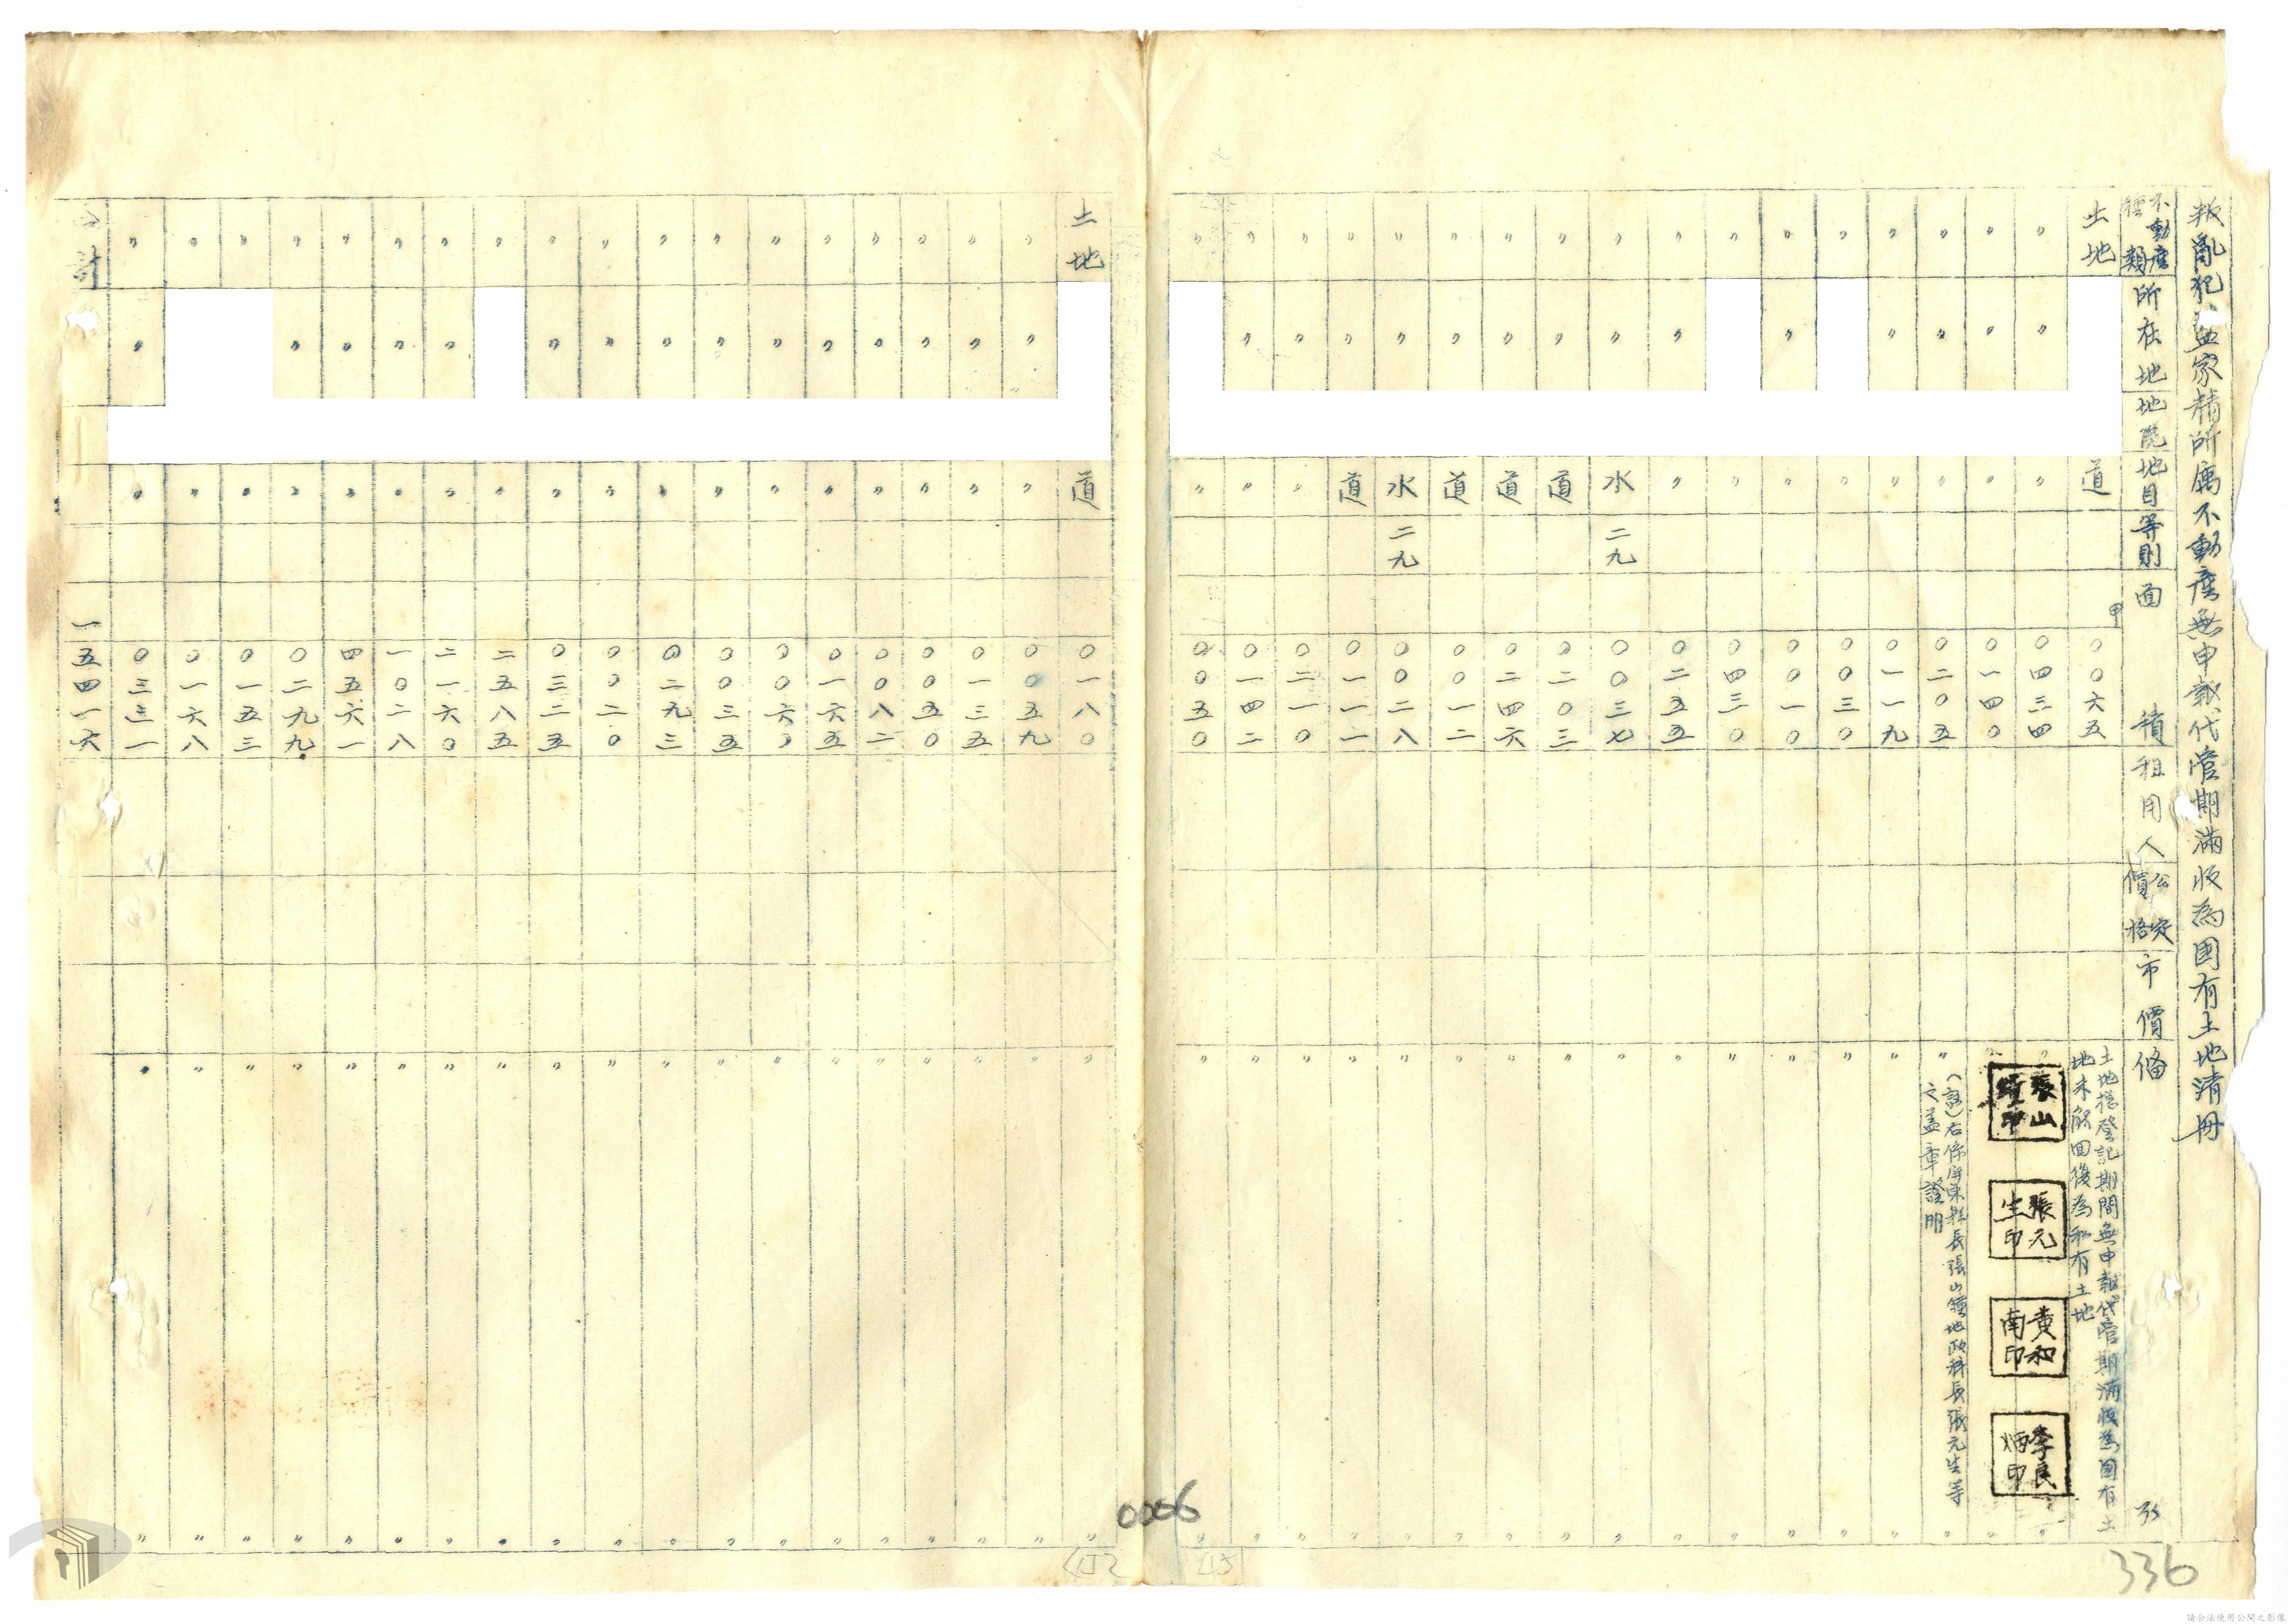 叛亂犯藍家精所屬不動產無申報代管期滿收為國有土地清冊
不動產種類 所在地 地號 地目 等則 面積 租用人 公定價格 市價 備考
土地 道 甲 〇〇六五 土地總登記期間無申報代管期滿收為國有土地未解回後為私有土地
〃 〃 〃 〇四三四 〃 〃
〃 〃 〃 〇一四〇
張山鐘印
張元生印
黃和南印
李良炳印
〃 〃 〃 〇二〇五 〃 〃
(註)右係屏東縣長張山鐘地政科長張元生等之蓋章證明
〃 〃 〃 〇一一九 〃 〃
〃 〃 〇〇三〇 〃 〃
〃 〃 〃 〇〇一〇 〃 〃
〃 〃 〇四三〇 〃 〃
〃 〃 〃 〇二五五 〃 〃
〃 〃 水 二九 〇〇三七 〃 〃
〃 〃 道 〇二〇三 〃 〃
〃 〃 道 〇二四六 〃 〃
〃 〃 道 〇〇一二 〃 〃
〃 〃 水 二九 〇〇二八 〃 〃
〃 〃 道 〇一一一 〃 〃
〃 〃 〃 〇二一〇 〃 〃
〃 〃 〃 〇一四二 〃 〃
〃 〃 〇〇五〇 〃 〃
土地 道 〇一八〇 〃 〃
〃 〃 〃 〇〇五九 〃 〃
〃 〃 〃 〇一三五 〃 〃
〃 〃 〃 〇〇五〇 〃 〃
〃 〃 〃 〇〇八二 〃 〃
〃 〃 〃 〇一六五 〃 〃
〃 〃 〃 〇〇六〇 〃 〃
〃 〃 〃 〇〇三五 〃 〃
〃 〃 〃 〇二九三 〃 〃
〃 〃 〃 〇〇二〇 〃 〃
〃 〃 〃 〇三二五 〃 〃
〃 〃 二五八五 〃 〃
〃 〃 〃 二一六〇 〃 〃
〃 〃 〃 一〇二八 〃 〃
〃 〃 〃 四五六一 〃 〃
〃 〃 〃 〇二九九 〃 〃
〃 〃 〇一五三 〃 〃
〃 〃 〇一六八 〃 〃
〃 〃 〃 〇三三一 〃 〃
合計 一五四一六
0006
336
請合法使用公開之影像